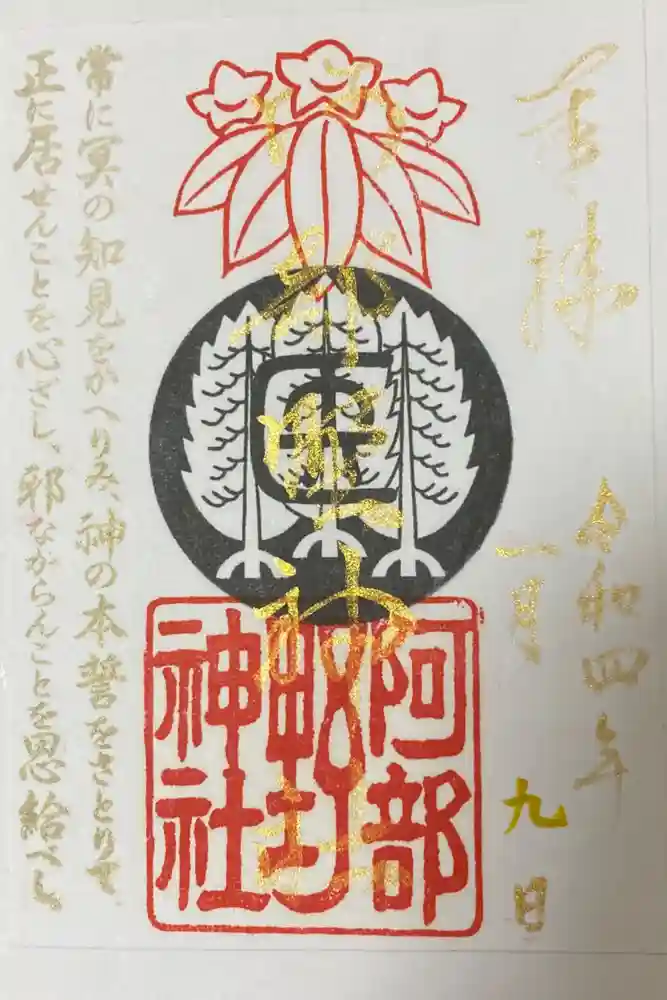 奉拝
令和四年
一月
九日
阿部野神社
阿部
野
神社
常に冥の知見をかへりみ、神の本誓をさとりて、
正に居せんことを心ざし、邪ながらんことを思給べし